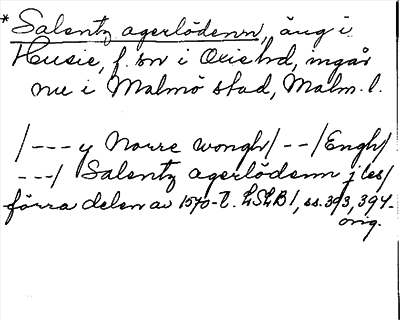 * Salentz agerlödenn, äng i
Husie, f. sn i Oxie hd, ingår
nu i Malmö stad, Malm. l.
/--- y Norre wongh/--/Engh/
---/ Salentz agerlödenn j les/
förra delen av 1570-t. LSLB 1, ss. 393, 394.
orig.